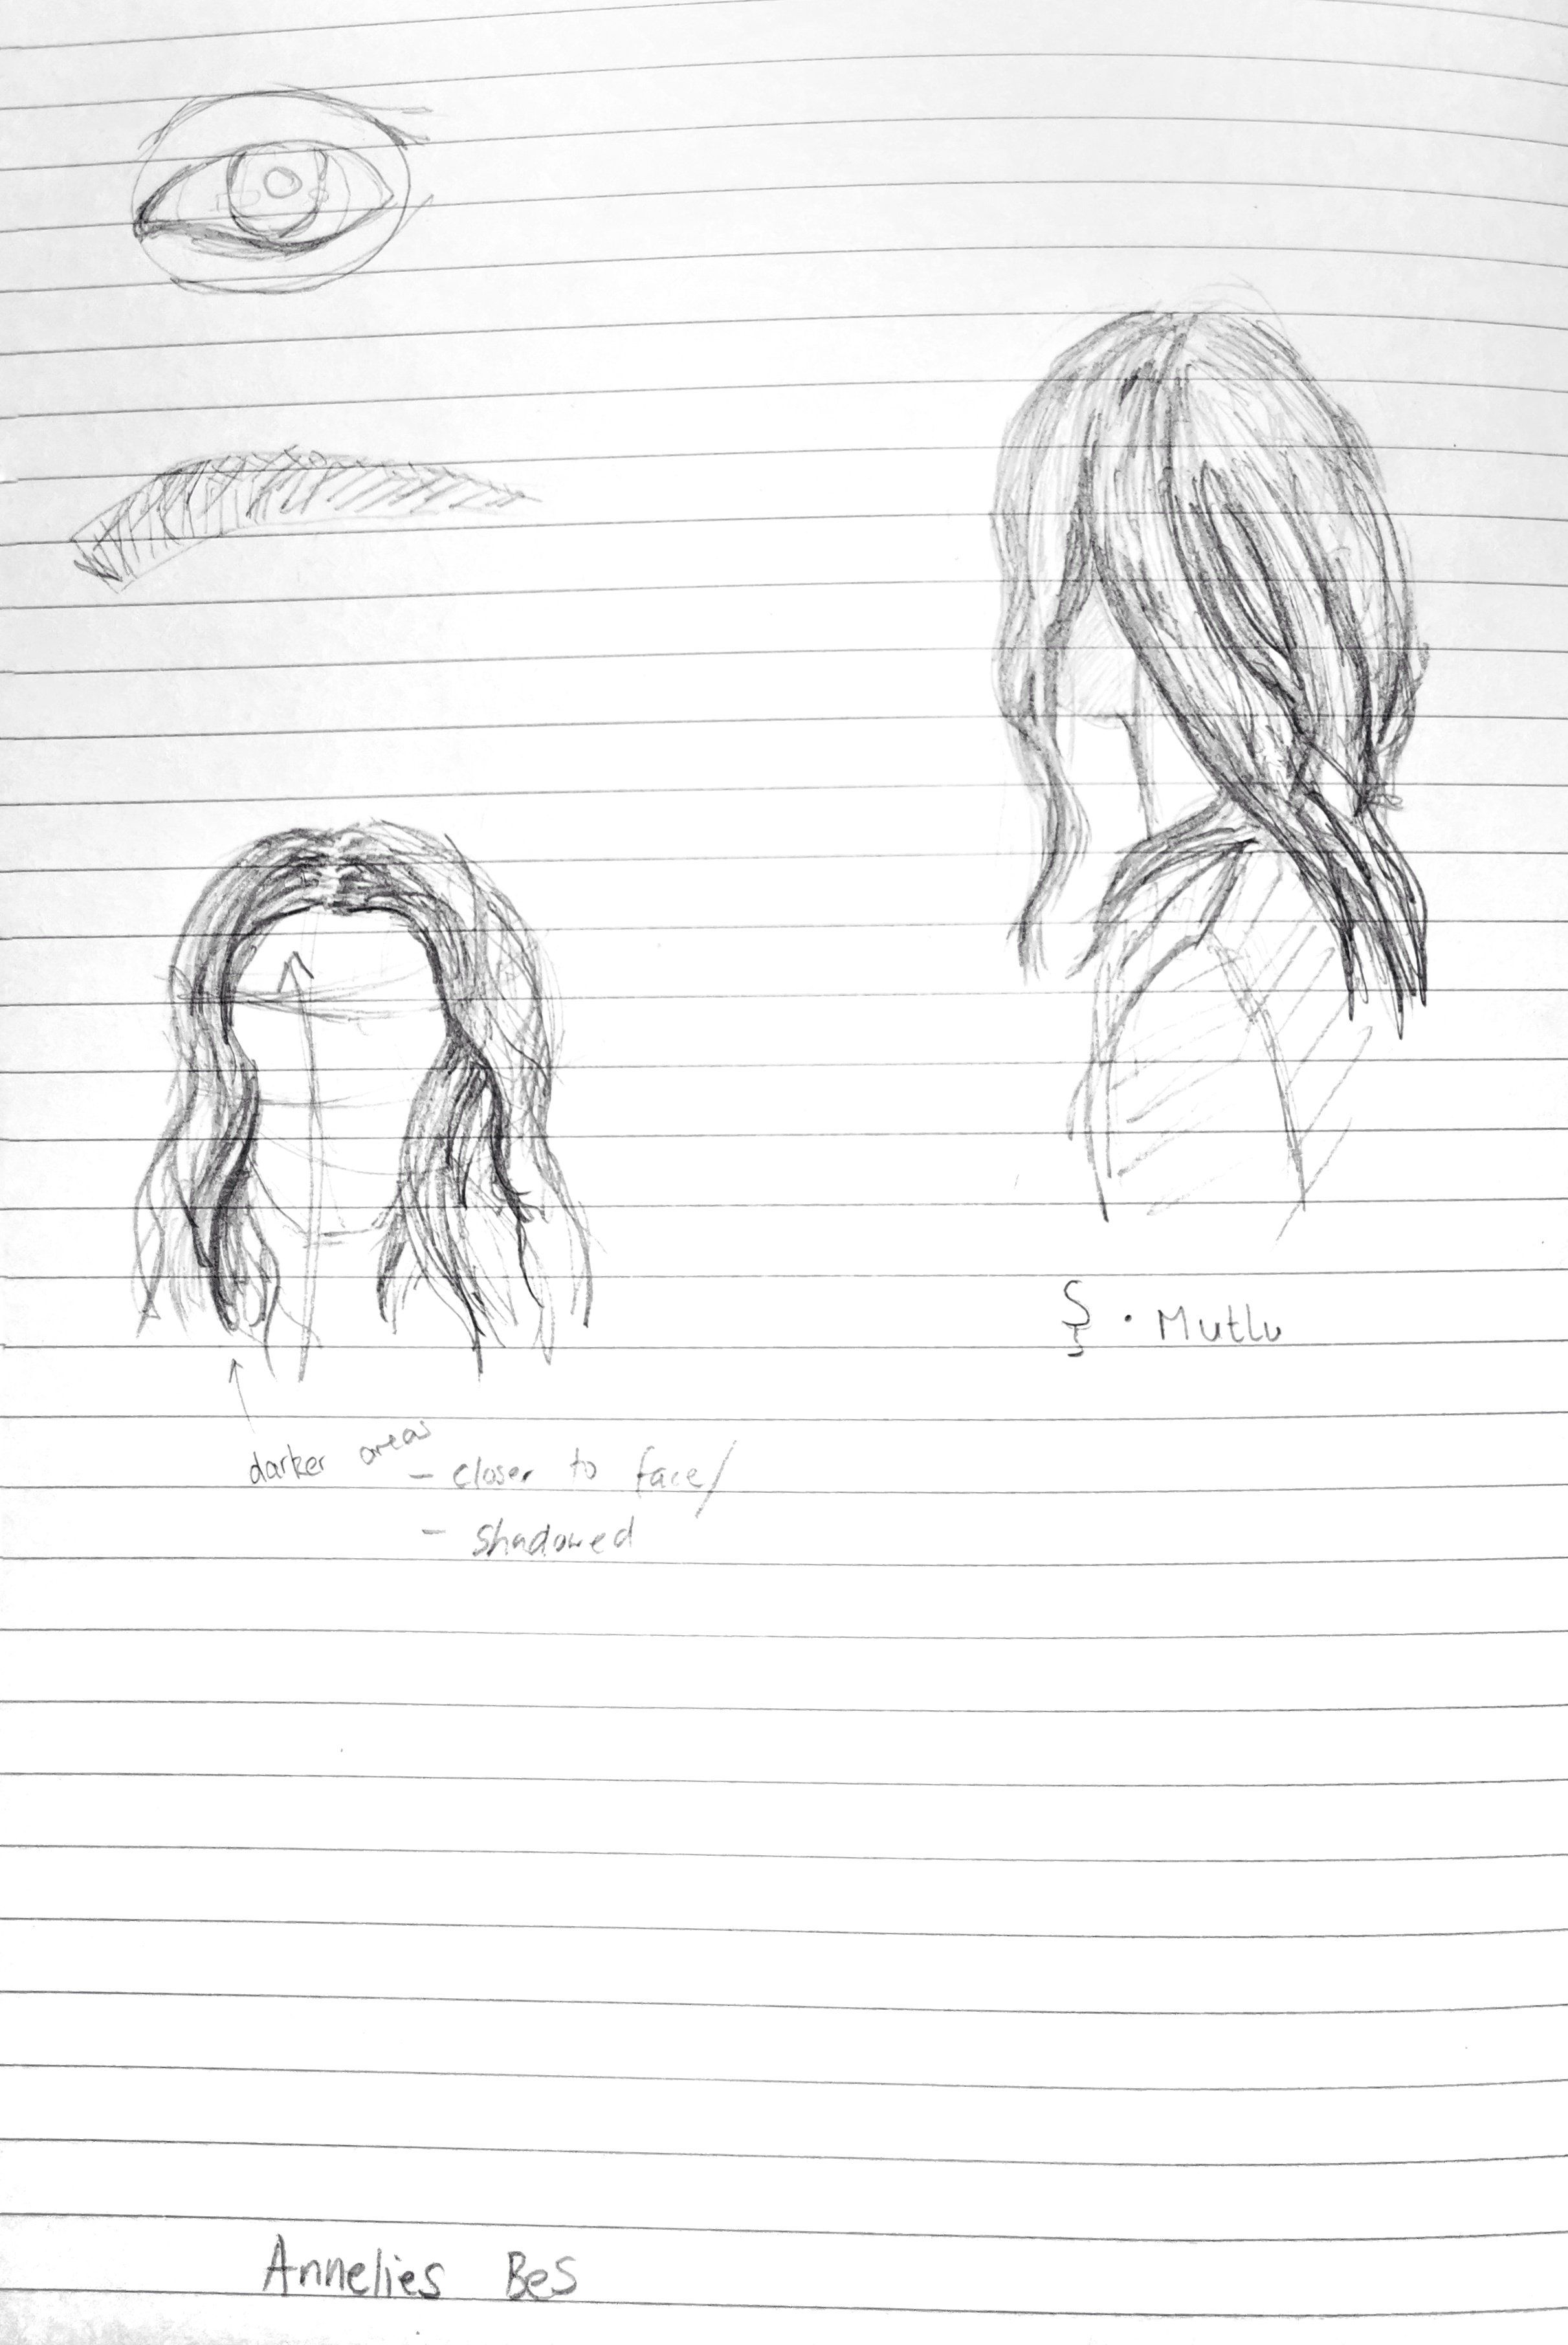 Ş. Mutlu
darker areas
- closer to face/
- shadowed
Annelies Bes